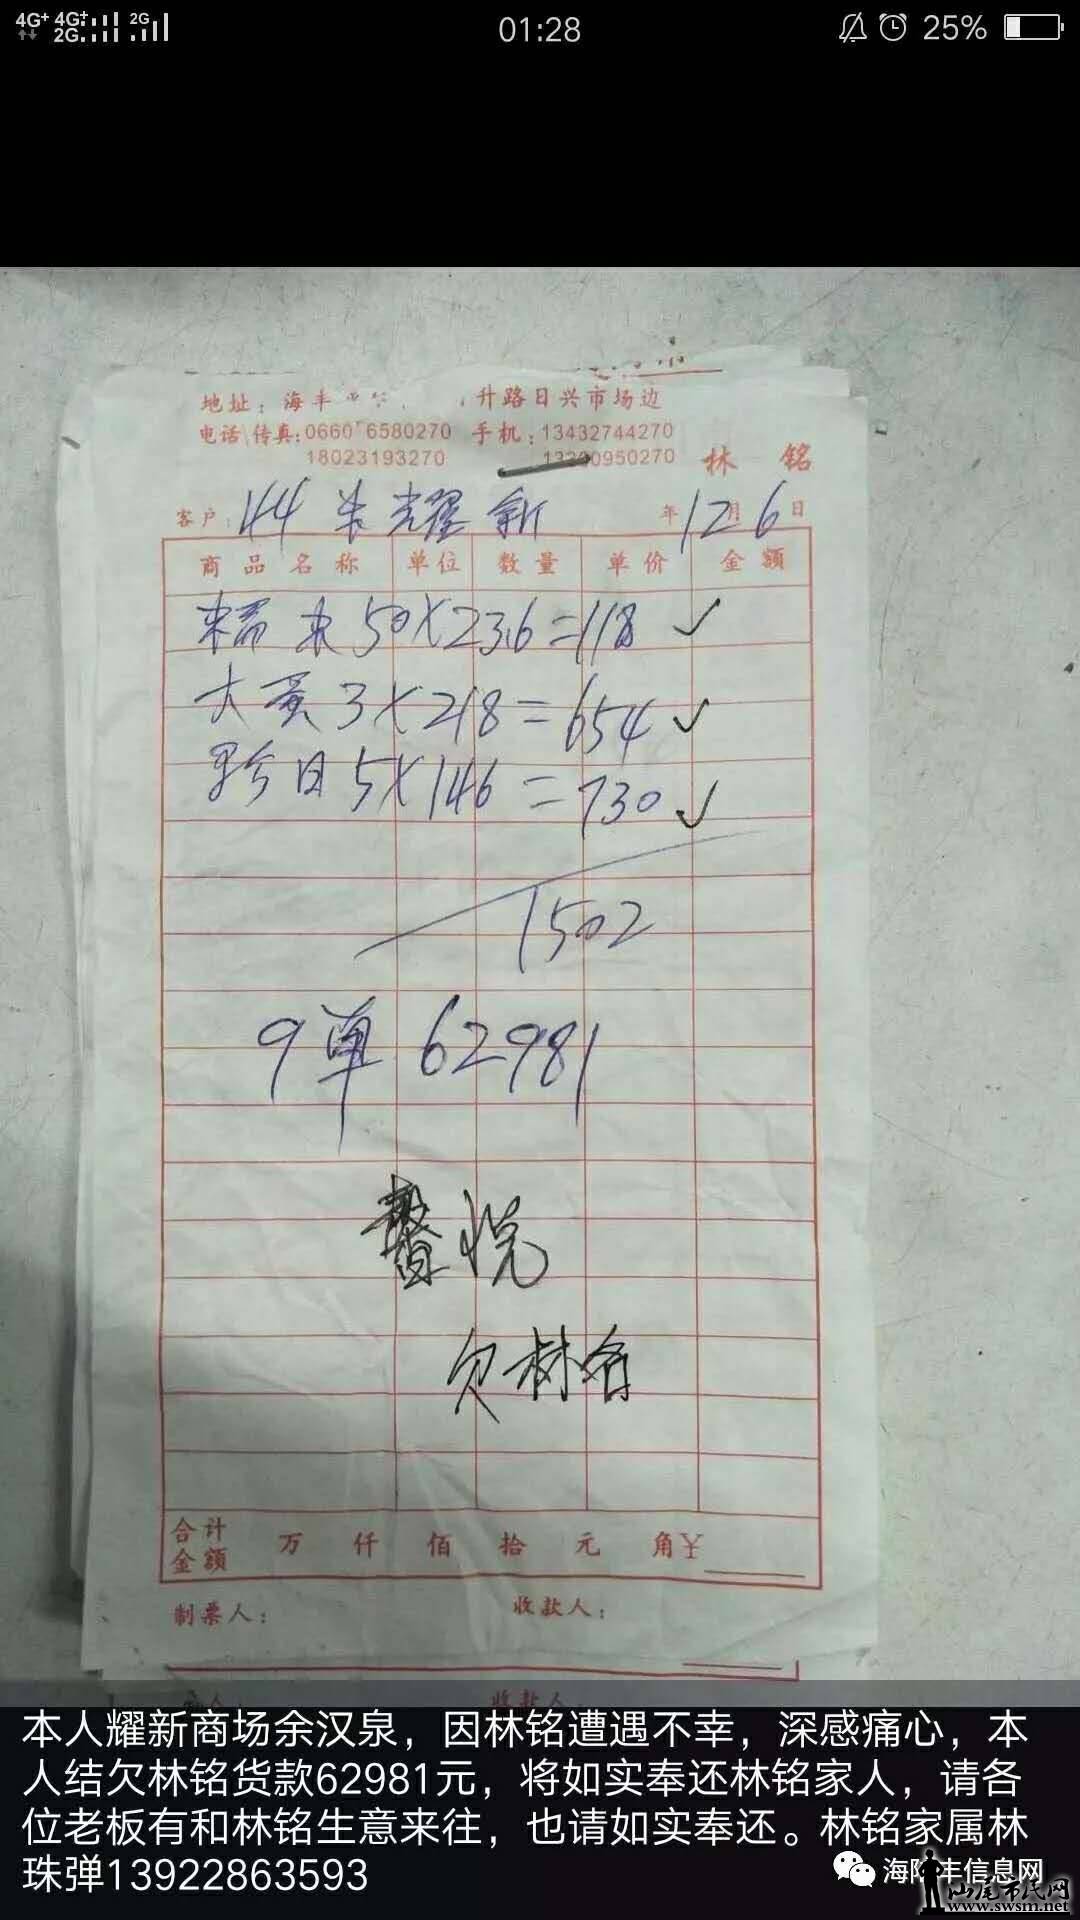 4G+ 4G+ 2G
2G
01:28
25%
地址：海丰 升路日兴市场边
电话\传真:0660 6580270 手机:13432744270
18023193270 0950270 林 铭
客户: 耀新 年12月6日
商品名称 单位 数量 单价 金额
糯米 50×23.6=118 ✓
大黄 3×218=654 ✓
5×146=730 ✓
1502
9单 62981
悦
欠林铭
合计金额 万 仟 佰 拾 元 角 ¥
制票人： 收款人：
人： 收款人：
本人耀新商场余汉泉，因林铭遭遇不幸，深感痛心，本
人结欠林铭货款62981元，将如实奉还林铭家人，请各
位老板有和林铭生意来往，也请如实奉还。林铭家属林
珠弹13922863593
海陆丰信息网
汕尾市民网
www.swsm.net